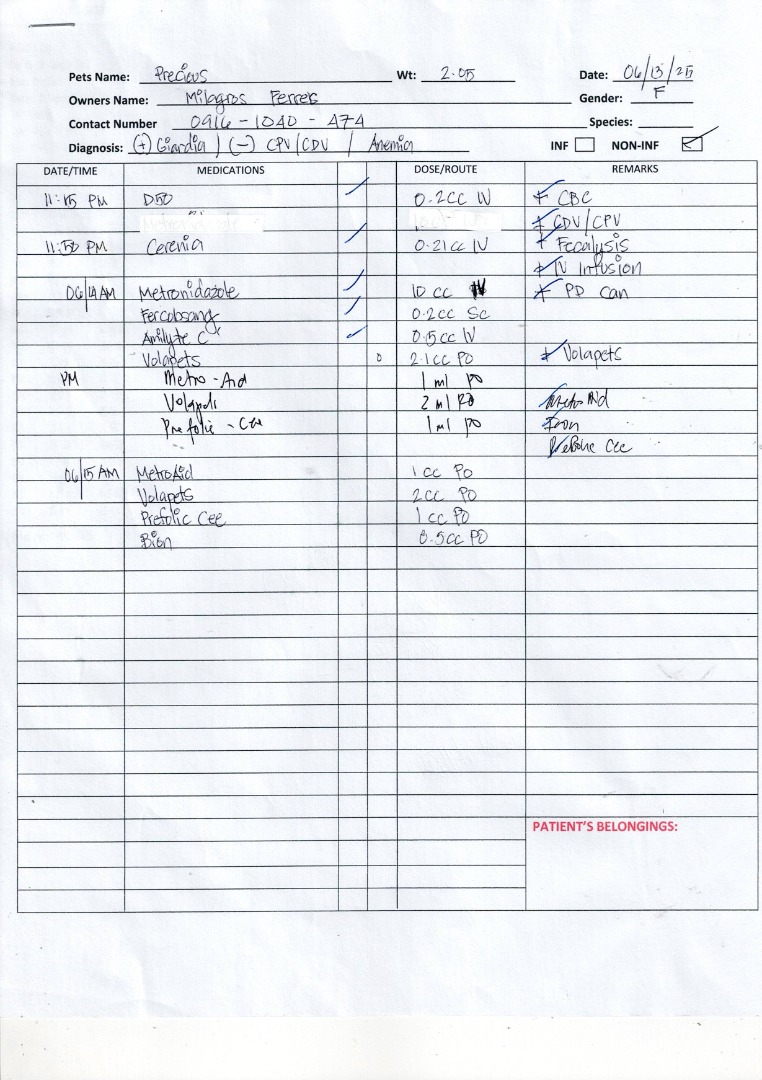 Pets Name: Precious Wt: 2.05 Date: 06/13/25
Owners Name: Milagros Ferrer Gender: F
Contact Number 0916-1040-474 Species:
Diagnosis: (+) Giardia / (-) CPV/CDV / Anemia INF NON-INF
DATE/TIME MEDICATIONS DOSE/ROUTE REMARKS
11:15 PM D50 0.2cc IV CBC
CDV/CPV
11:50 PM Cerenia 0.21cc IV Fecalysis
IV Infusion
06/14 AM Metronidazole 10 cc PD Can
Fercobsang 0.2cc SC
Amilyte C 0.5cc IV
Volapets 0 2.1cc PO Volapets
PM Metro-Aid 1 ml PO
Volapets 2 ml PO Metro Aid
Prefolic-Cee 1 ml PO Iron
Prefolic Cee
06/15 AM MetroAid 1 cc PO
Volapets 2cc PO
Prefolic Cee 1 cc PO
Bion 0.5cc PO
PATIENT'S BELONGINGS: